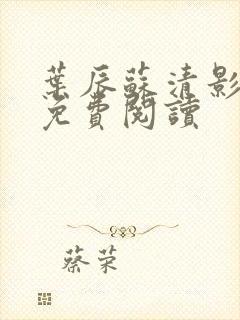 葉辰蘇清影
免費閱讀
蔡荣